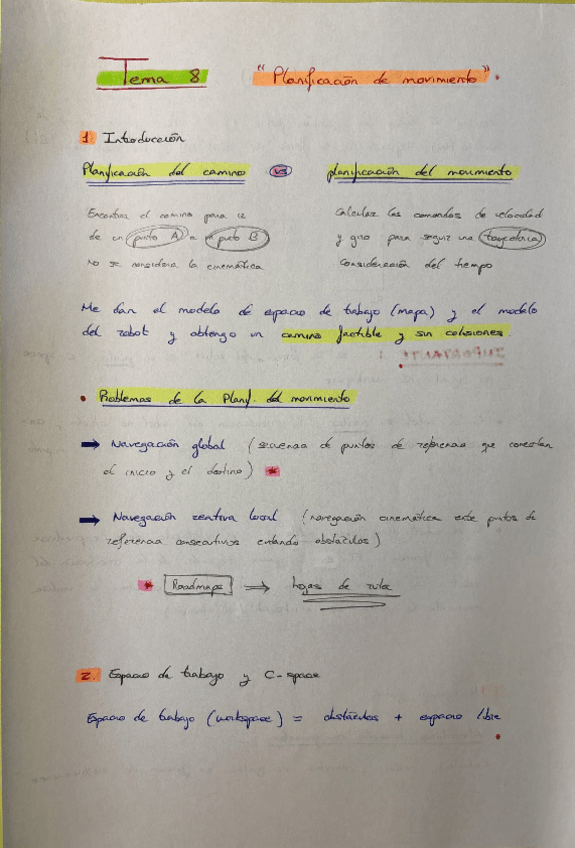 Tema 8 "Planificación de movimiento".
1. Introducción
Planificación del camino vs planificación del movimiento
Encontrar el camino para ir
de un punto A a punto B
No se considera la cinemática
Calcular los comandos de velocidad
y giro para seguir una trayectoria
Consideración del tiempo
Me dan el modelo de espacio de trabajo (mapa) y el modelo
del robot y obtengo un camino factible y sin colisiones.
• Problemas de la Planif. del movimiento
➡ Navegación global (secuencia de puntos de referencia que conectan
el inicio y el destino) *
➡ Navegación reactiva local (navegación cinemática entre puntos de
referencia consecutivos evitando obstáculos)
* Roadmaps ⇒ hojas de ruta
2. Espacio de trabajo y C-space
Espacio de trabajo (workspace) = obstáculos + espacio libre